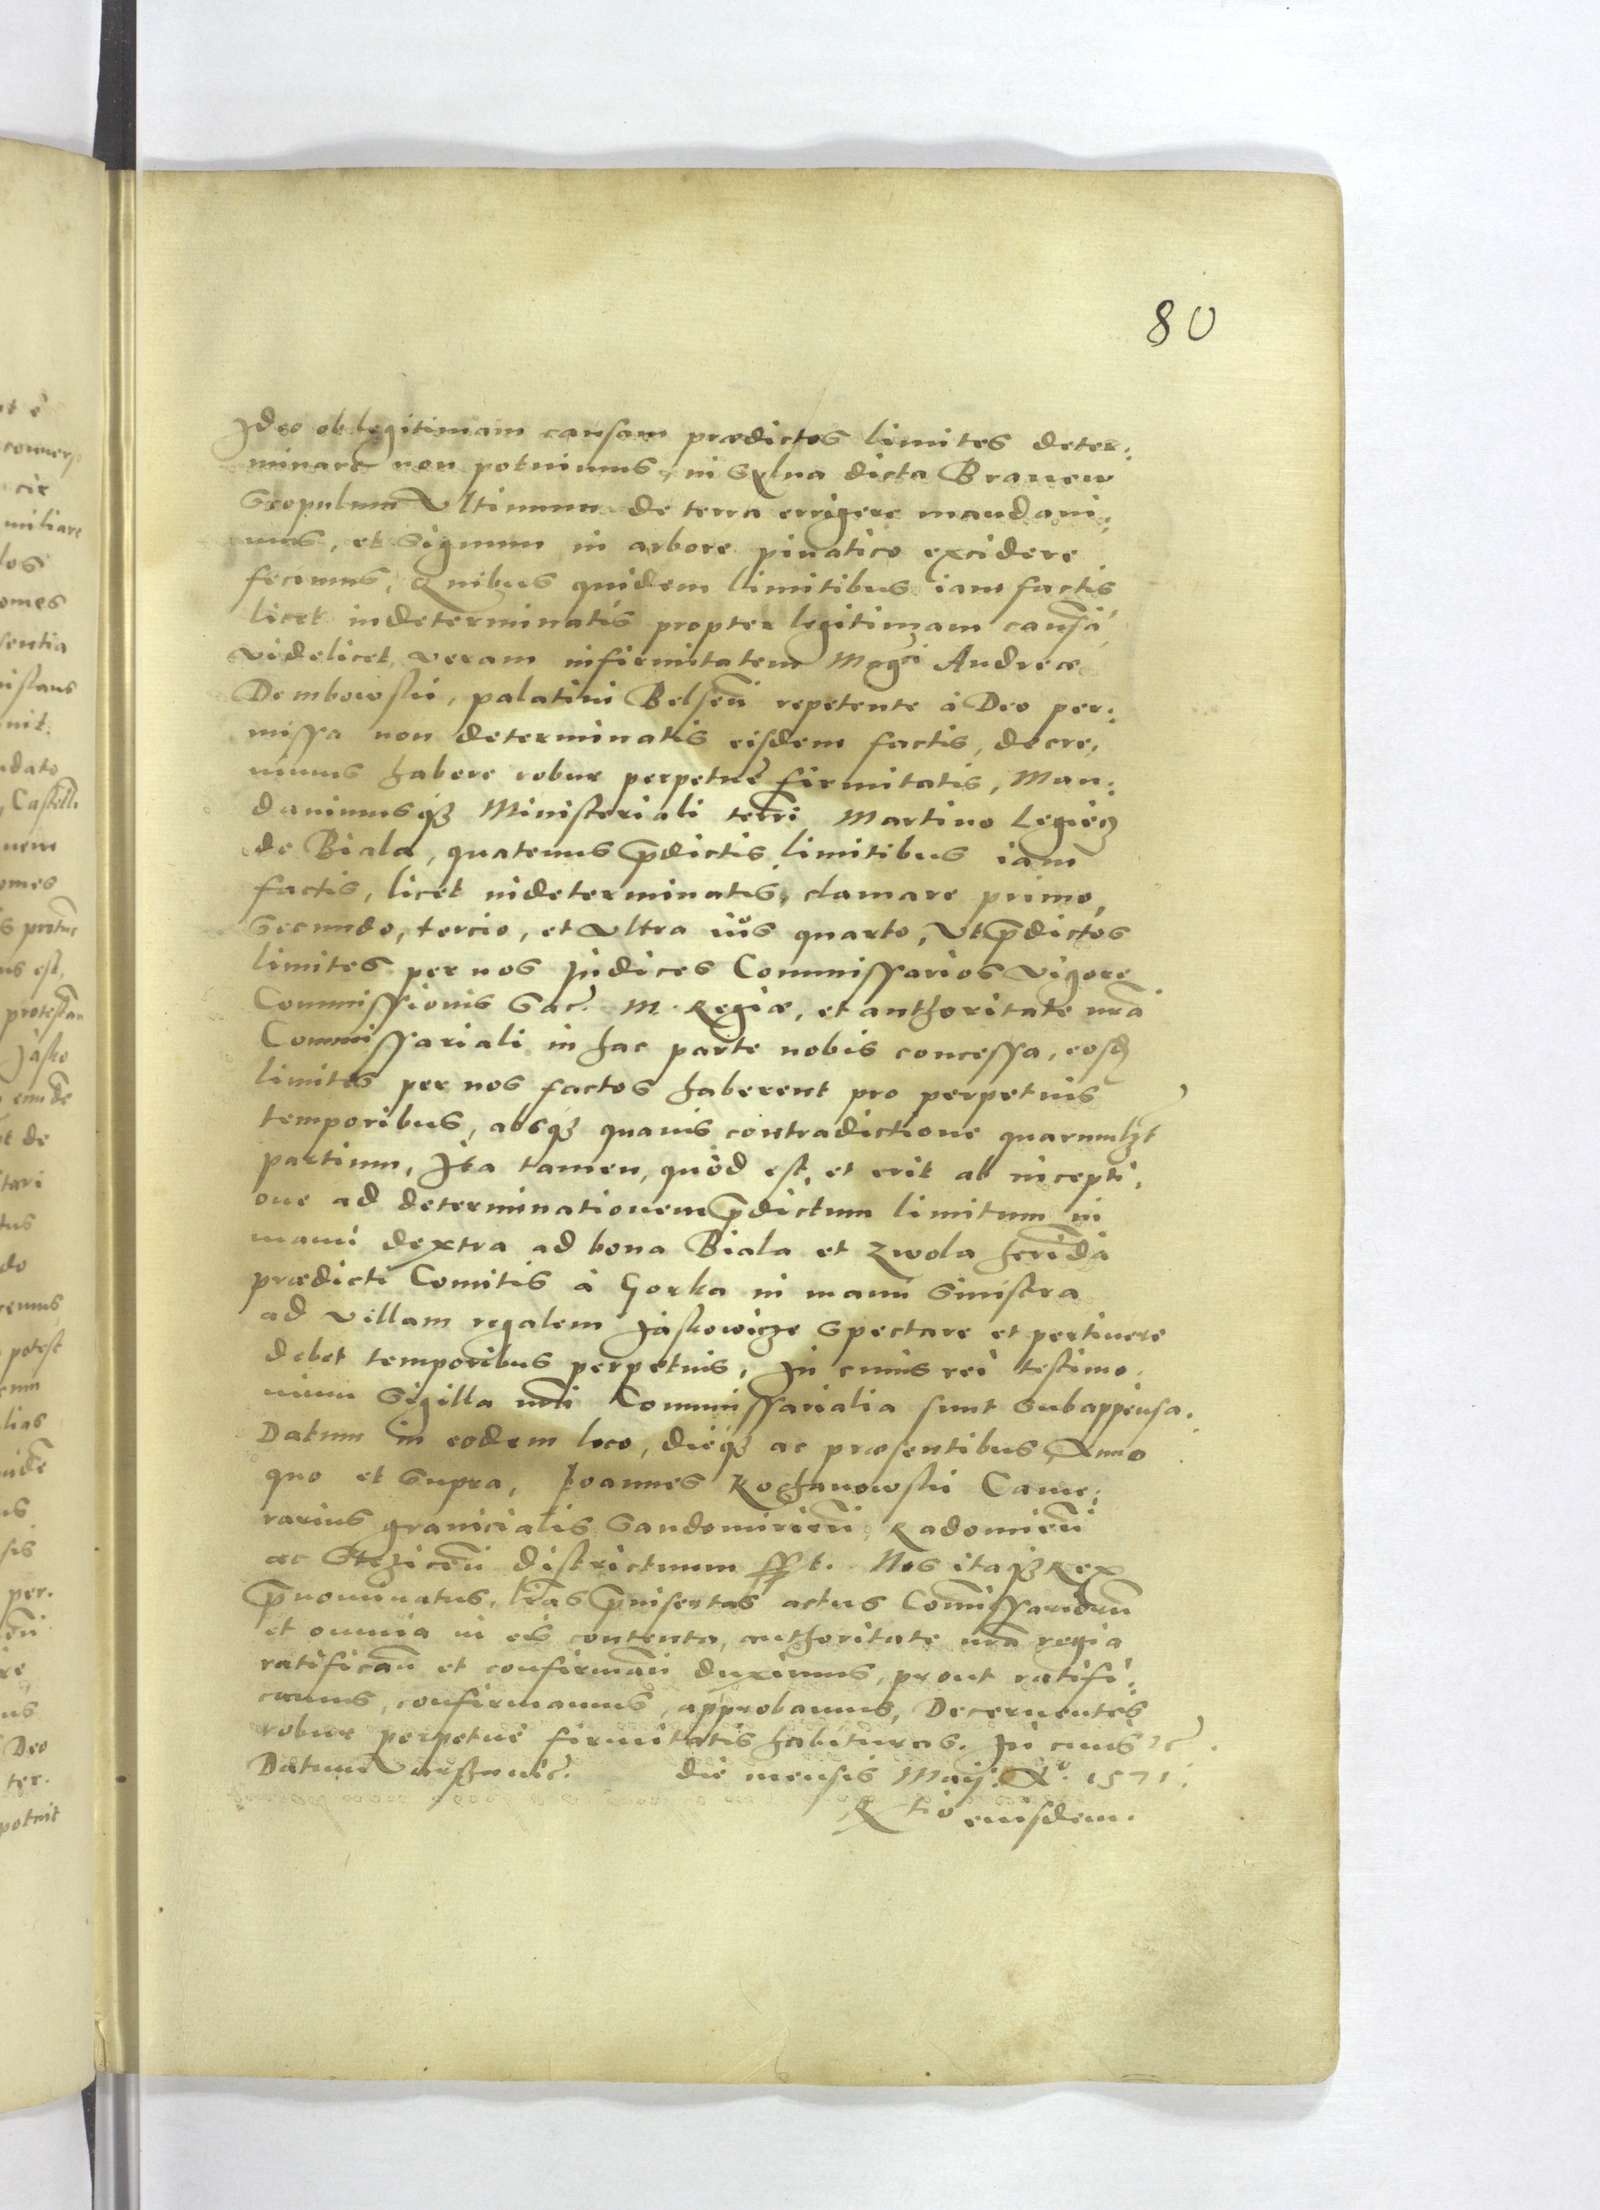 80
Ideo ob legitimam causam prædictos limites deter:
minare non potuimus, in sylua dicta Braneu
scopulum Vltimum de terra errigere mandaui:
mus, et signum in arbore pinatico excidere
fecimus, Quibus quidem limitibus iam factis
licet indeterminatis propter legitimam causã
videlicet veram infirmitatem Mgci Andreæ
Dembowskii, palatini Belseñ repetente à Deo per:
missa non determinatis eisdem factis, decre,
uimus habere robur perpetuè firmitatis, Man:
dauimusqȝ Ministeriali terri Martino Legiecz
de Biala, quatenus p̃dictis limitibus iam
factis, licet indeterminatis, clamare primo,
secundo, tercio, et vltra ius quarto, Vt p̃dictos
limites per nos Judices Commissarios vigore
Commissionis Sac. M. Regiæ, et authoritate nrã
Commissariali in hac parte nobis concessa, eosd
limites per nos factos haberent pro perpetuis
temporibus, absqȝ quauis contradictione quarumlȝt
partium, Ita tamen, quòd est, et erit ab incepti,
one ad determinationem p̃dictum limitum in
manu dextra ad bona Biala et Zwola
prædicti Comitis à Gorka in manu sinistra
ad villam regalem Jaskowicze spectare et pertinere
debet temporibus perpetuis, In cuius rei testimo:
nium sigilla nrã Commissarialia sunt subappensa.
Datum in eodem loco, dieqȝ ac præsentibus Anno
quo et supra, Joannes Kochanowski Came:
rarius granicialis Sandomirieñ Radomieñ
ac Stezicen̄ districtuum sspt. Nos itaqȝ Rex
p̃nominatus, lrãs p̃insertas actus Com̃issariorũ
et omnia in eis contenta, authoritate nrã regia
ratificañ et confirmañ duximus, prout ratifi:
camus, confirmamus, approbamus, Decernentes
robur perpetuè firmitatis habituras. In cuius
Datum Varshauiæ. die mensis Maij. Ao. 1571.
Rtio eiusdem.